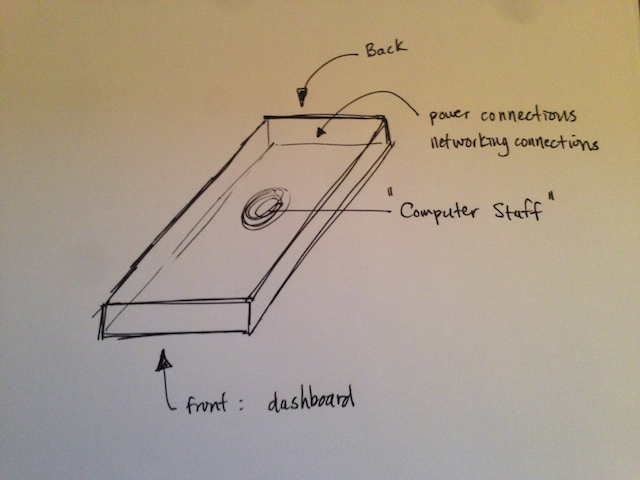 Back
power connections
networking connections
"Computer Stuff"
front: dashboard